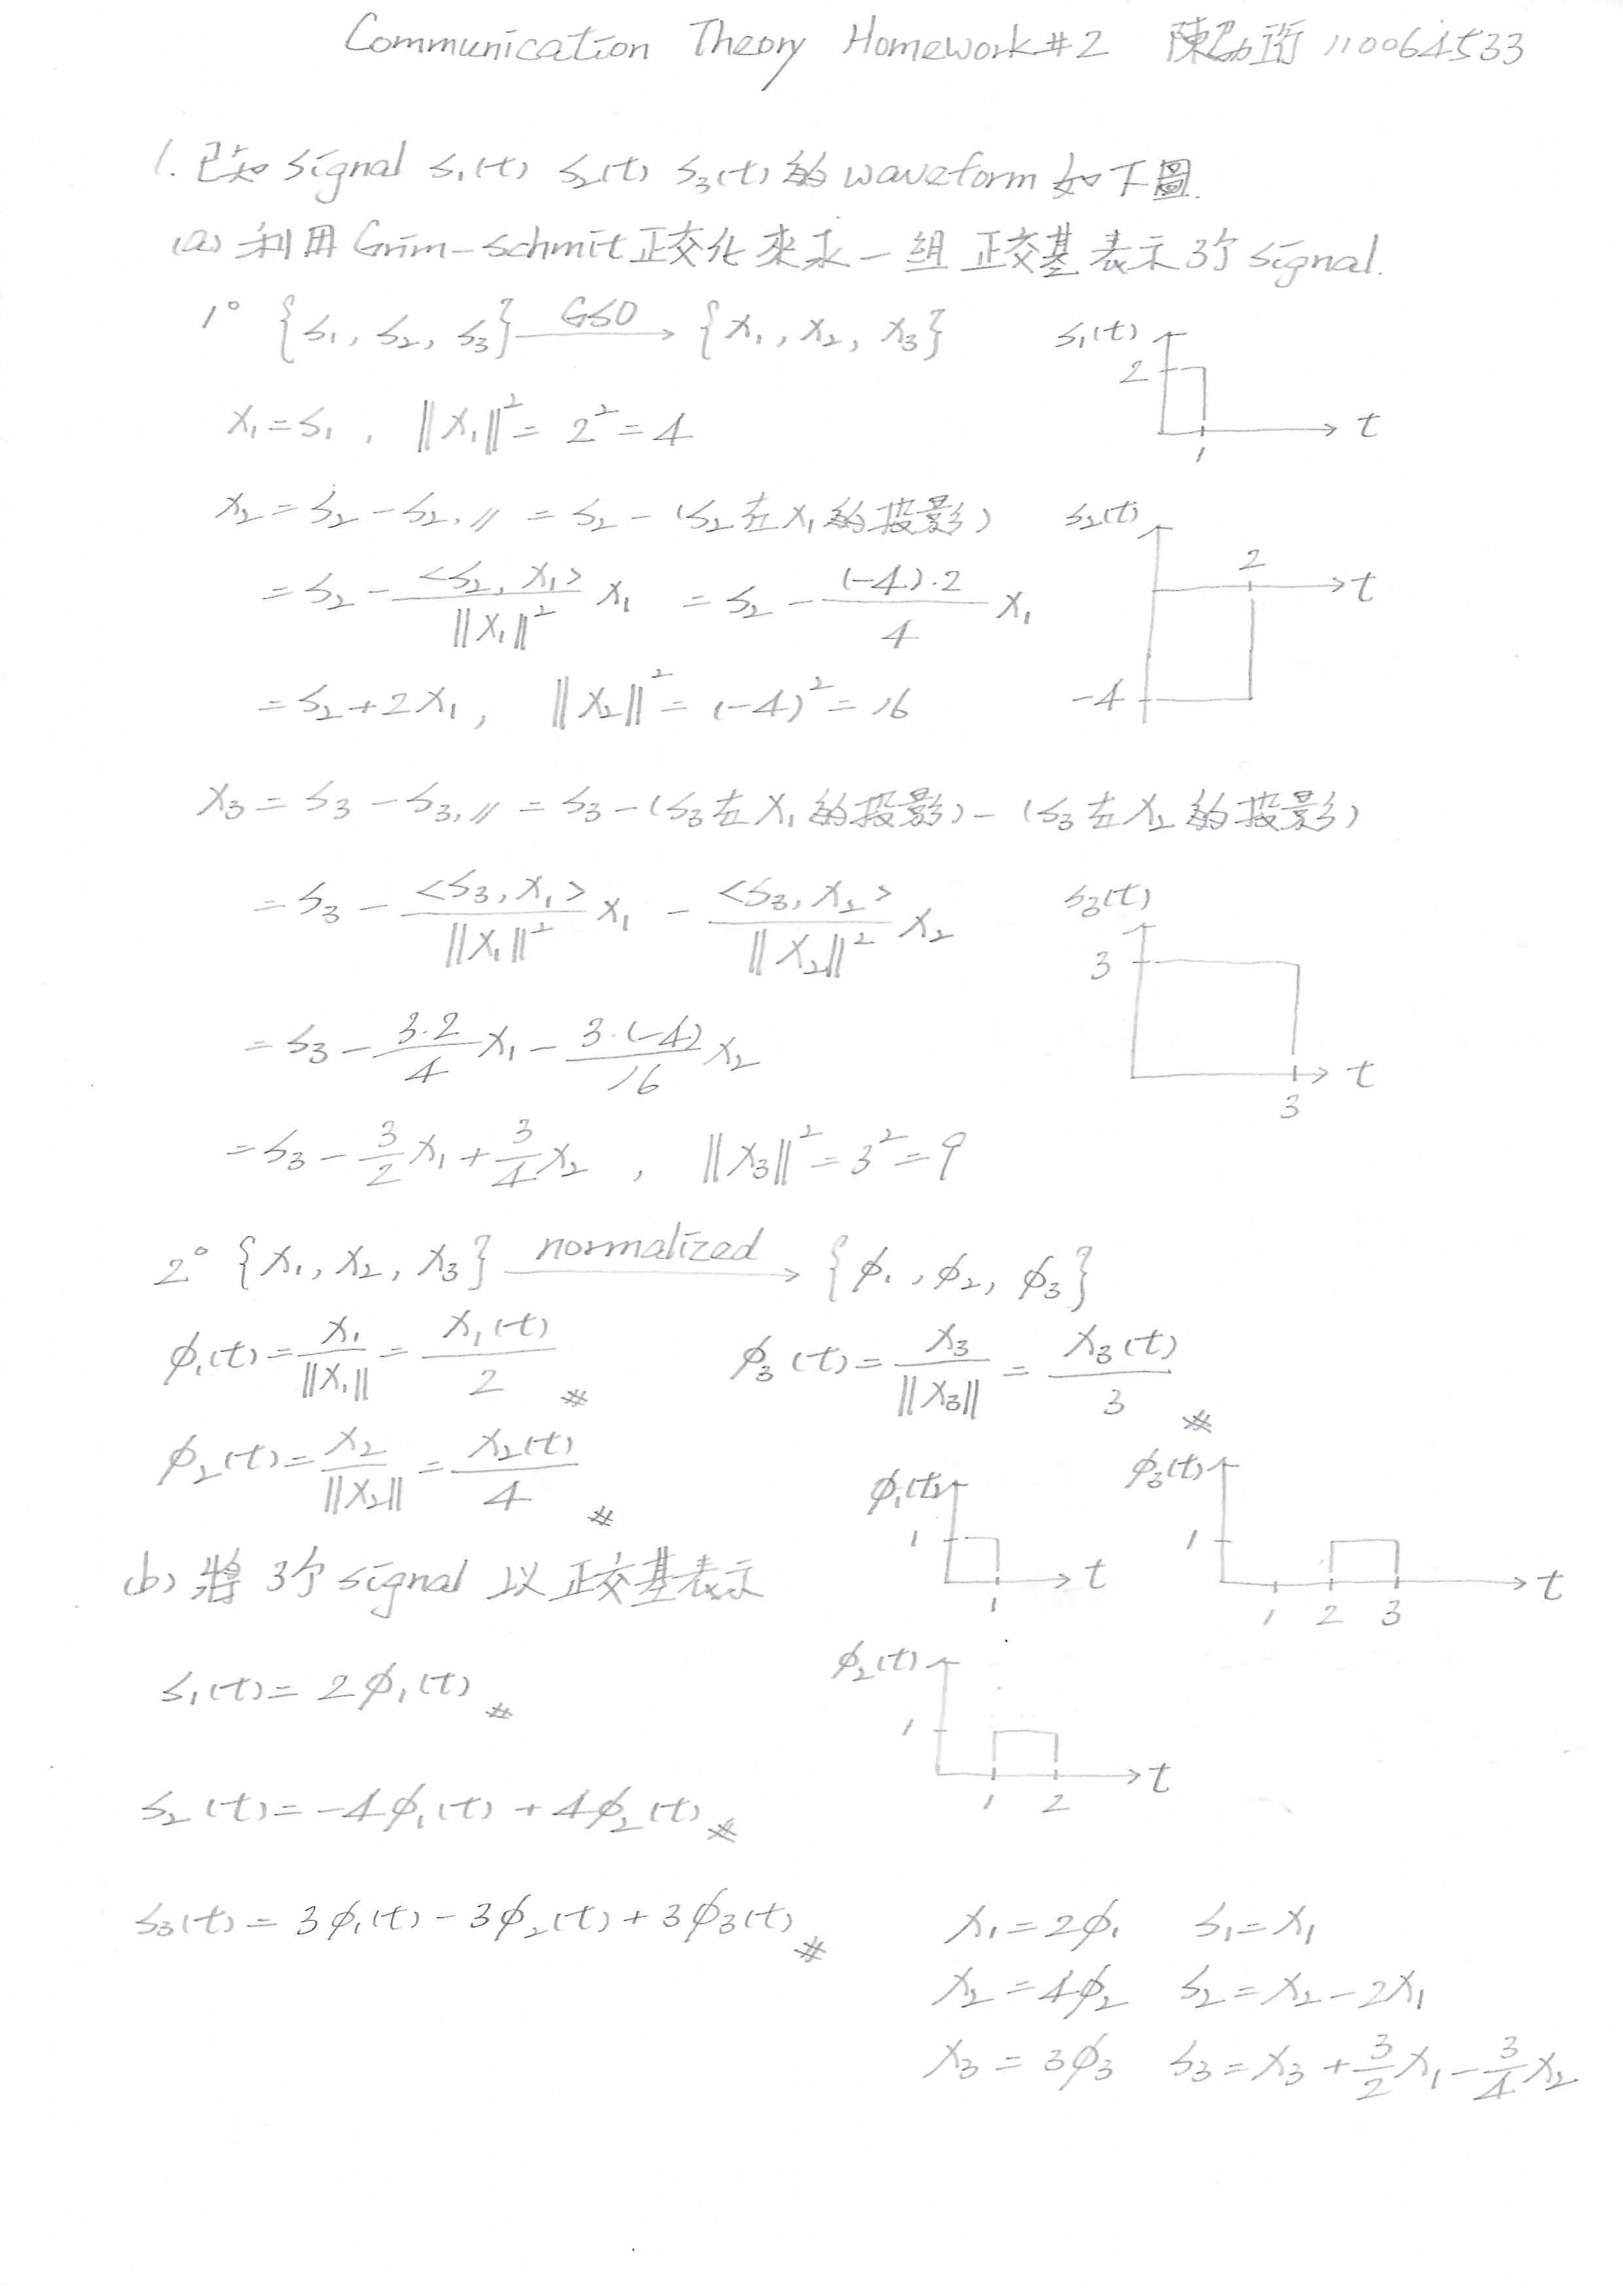 Communication Theory Homework#2 陳 110064533
1. 已知 signal s₁(t) s₂(t) s₃(t) 的 waveform 如下圖.
(a) 利用 Grim-Schmit 正交化來求一組 正交基表示 3个 signal.
1° {s₁, s₂, s₃} GSO→ {x₁, x₂, x₃}
s₁(t)
2
t
1
x₁ = s₁ , ||x₁||² = 2² = 4
x₂ = s₂ - s₂,// = s₂ - (s₂在x₁的投影)
s₂(t)
2
t
-4
= s₂ - <s₂, x₁>/||x₁||² x₁ = s₂ - (-4)·2/4 x₁
= s₂ + 2x₁, ||x₂||² = (-4)² = 16
x₃ = s₃ - s₃,// = s₃ - (s₃在x₁的投影) - (s₃在x₂的投影)
= s₃ - <s₃, x₁>/||x₁||² x₁ - <s₃, x₂>/||x₂||² x₂
s₃(t)
3
t
3
= s₃ - 3·2/4 x₁ - 3·(-4)/16 x₂
= s₃ - 3/2 x₁ + 3/4 x₂ , ||x₃||² = 3² = 9
2° {x₁, x₂, x₃} normalized→ {ϕ₁, ϕ₂, ϕ₃}
ϕ₁(t) = x₁/||x₁|| = x₁(t)/2 #
ϕ₃(t) = x₃/||x₃|| = x₃(t)/3 #
ϕ₂(t) = x₂/||x₂|| = x₂(t)/4 #
ϕ₁(t)
1
t
1
ϕ₃(t)
1
t
1 2 3
(b) 將 3个 signal 以正交基表示
s₁(t) = 2ϕ₁(t) #
ϕ₂(t)
1
t
1 2
s₂(t) = -4ϕ₁(t) + 4ϕ₂(t) #
s₃(t) = 3ϕ₁(t) - 3ϕ₂(t) + 3ϕ₃(t) #
x₁ = 2ϕ₁ s₁ = x₁
x₂ = 4ϕ₂ s₂ = x₂ - 2x₁
x₃ = 3ϕ₃ s₃ = x₃ + 3/2 x₁ - 3/4 x₂